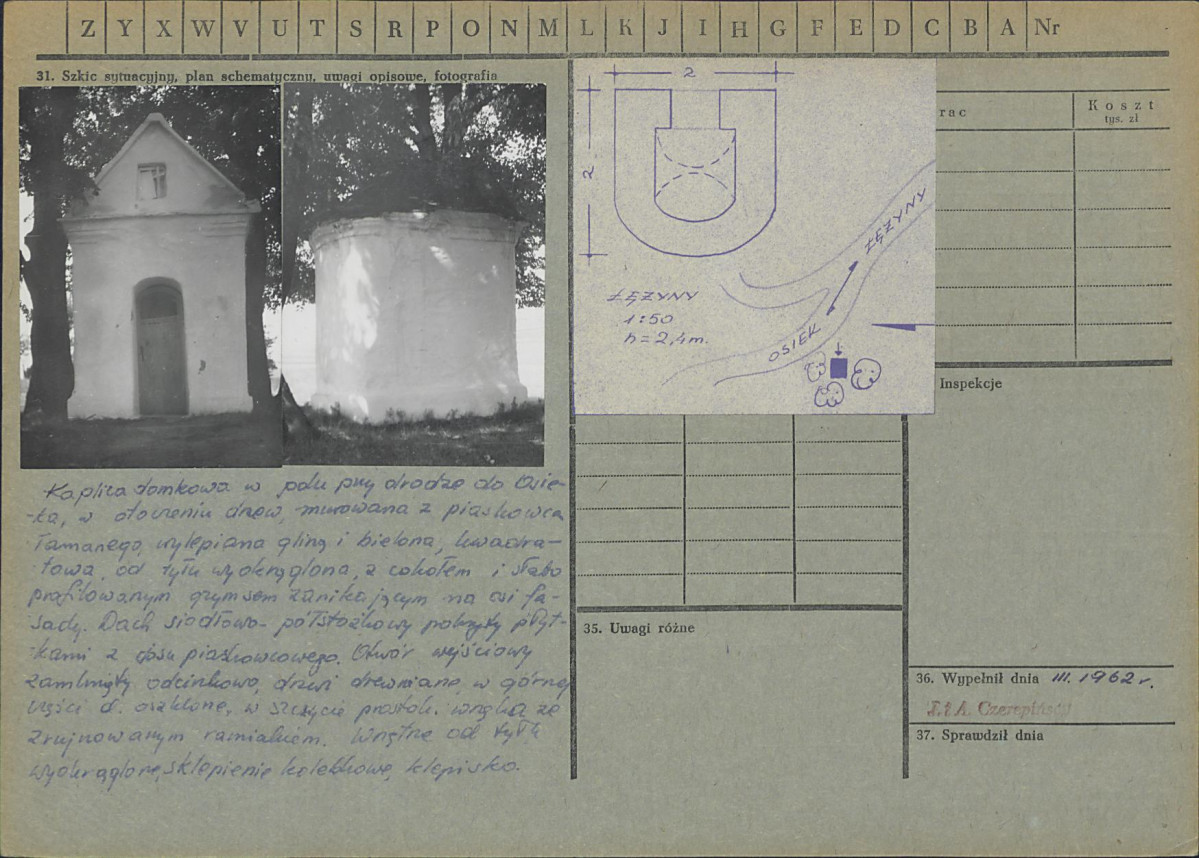 Z Y X W V U T S R P O N M L K J I H G F E D C B A Nr
31. Szkic sytuacyjny, plan schematyczny, uwagi opisowe, fotografia
2
2
ŁĘŻYNY
1:50
h = 2,4 m.
ŁĘŻYNY
OSIEK
rac
Koszt
tys. zł
Inspekcje
Kaplica domkowa w polu przy drodze do Osie-
-ka, w otoczeniu drzew, murowana z piaskowca
łamanego, wylepiana gliną i bielona, kwadra-
towa, od tyłu wyokrąglona, z cokołem i słabo
profilowanym gzymsem zanikającym na osi fa-
sady. Dach siodłowo-półstożkowy pokryty płyt-
kami z piaskowcowego. Otwór wejściowy
zamknięty odcinkowo, drzwi drewniane, w górnej
części d. oszklone, w szczycie prostok. wnęka ze
zrujnowanym ramiakiem. Wnętrze od tyłu
wyokrąglone, sklepienie kolebkowe, klepisko.
35. Uwagi różne
36. Wypełnił dnia III. 1962 r.
J. i A. Czerepińscy
37. Sprawdził dnia